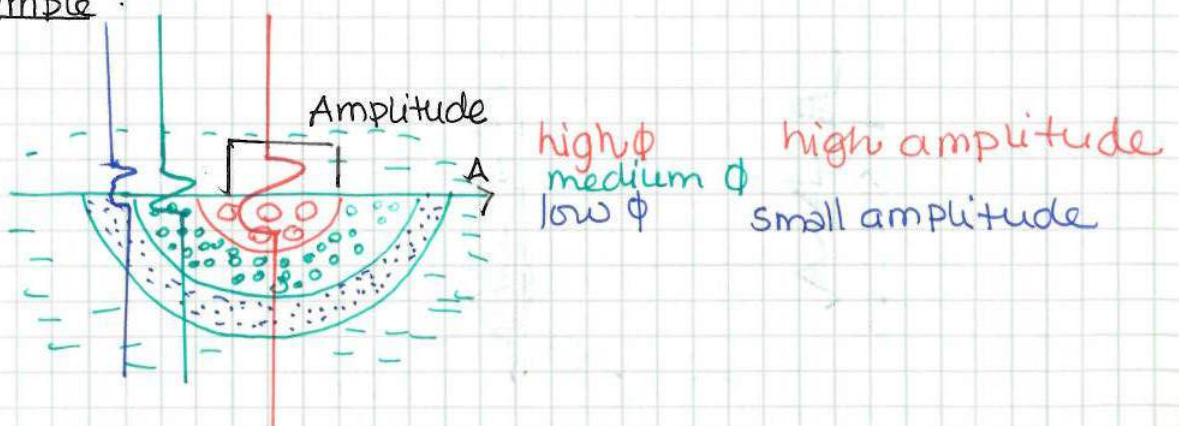 Amplitude
A
high ϕ high amplitude
medium ϕ
low ϕ small amplitude